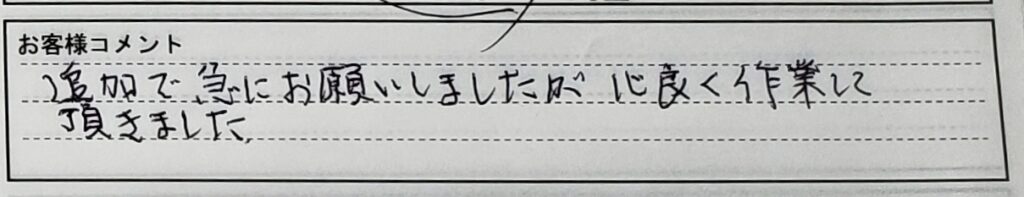 お客様コメント
追加で急にお願いしましたが心良く作業して
頂きました。